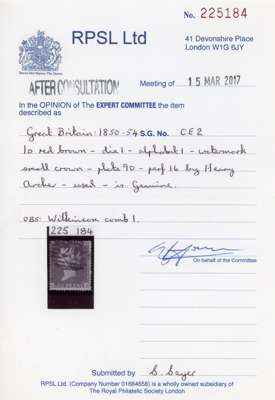 No. 225184
RPSL Ltd
41 Devonshire Place
London W1G 6JY
AFTER CONSULTATION
Meeting of 15 MAR 2017
In the OPINION of The EXPERT COMMITTEE the item
described as
Great Britain: 1850-54 S.G. No. CE2
1d red brown - die 1 - alphabet 1 - watermark
small crown - plate 90 - perf 16 by Henry
Archer - used - is Genuine.
OBS: Wilkinson comb 1.
225 184
On behalf of the Committee
Submitted by S. Sayer
RPSL Ltd. (Company Number 01684658) is a wholly owned subsidiary of
The Royal Philatelic Society London